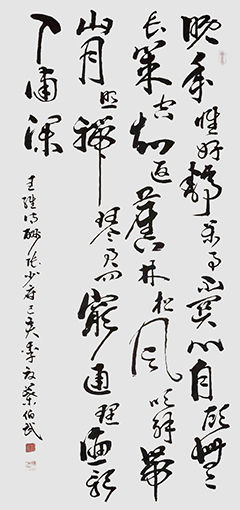 晚年唯好靜萬事不關心自顧無
長策空知返舊林松風吹解帶
山月照彈琴君問窮通理漁歌
入浦深
王維詩酬張少府己亥季伯武